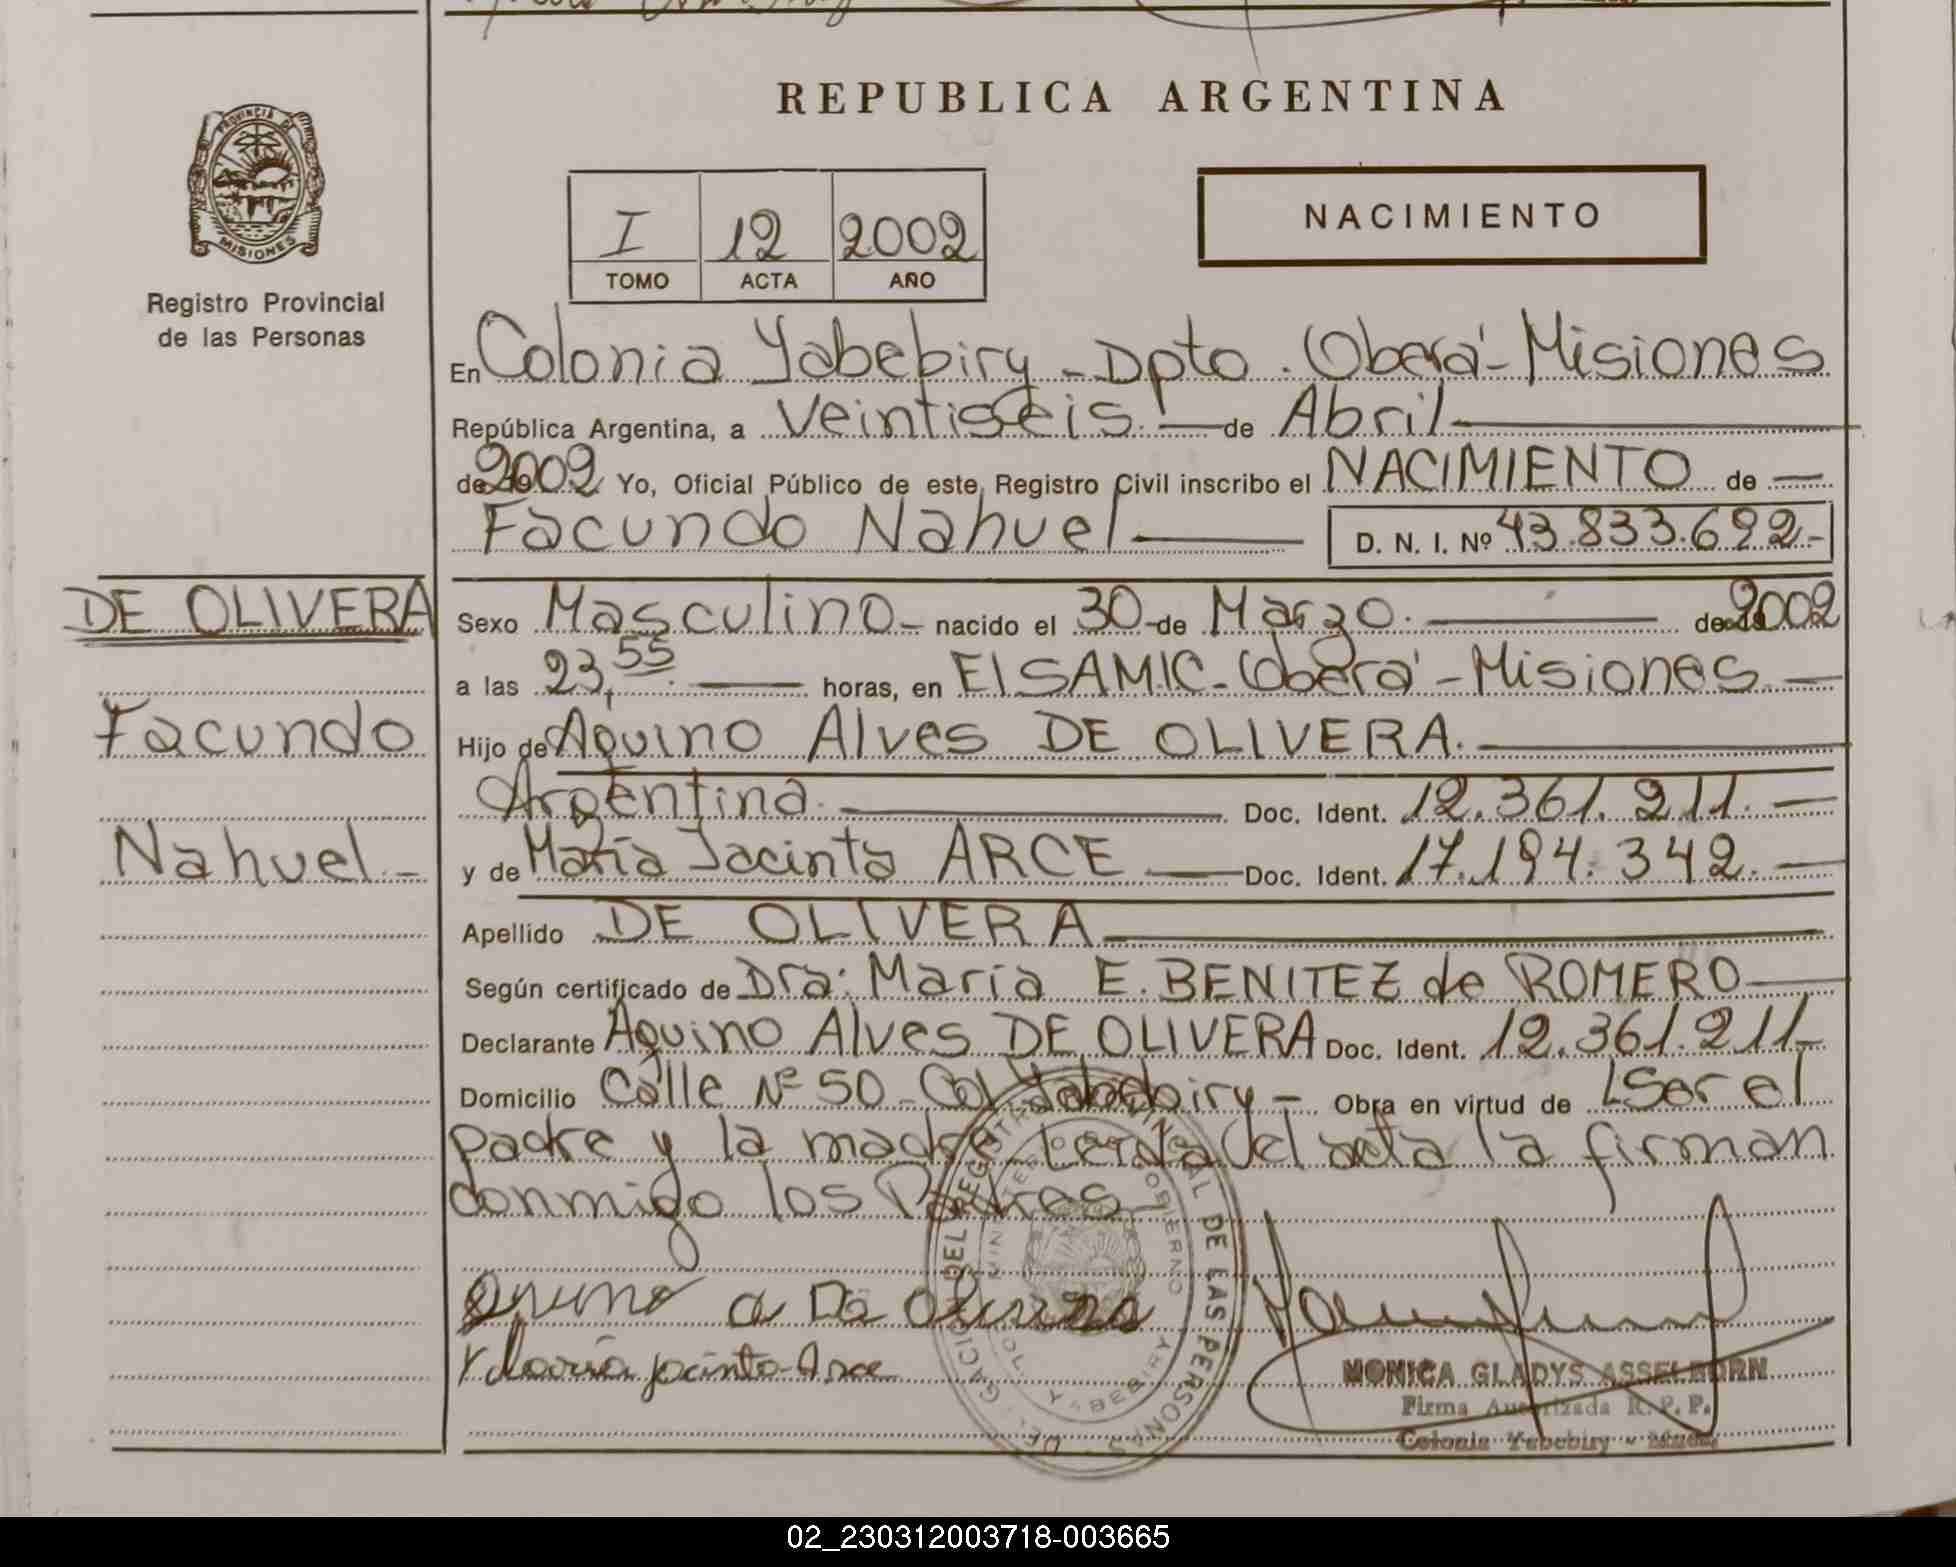 REPUBLICA ARGENTINA
PROVINCIA DE
MISIONES
Registro Provincial
de las Personas
I 12 2002
TOMO ACTA AÑO
NACIMIENTO
En Colonia Yabebiry - Dpto. Oberá - Misiones
República Argentina, a Veintiseis de Abril
de 2002 Yo, Oficial Público de este Registro Civil inscribo el NACIMIENTO de
Facundo Nahuel D. N. I. Nº 43.833.692.-
DE OLIVERA
Facundo
Nahuel.-
Sexo Masculino - nacido el 30 de Marzo. de 2002
a las 23,55. horas, en El SAMIC - Oberá - Misiones
Hijo de Aquino Alves DE OLIVERA.
Argentina. Doc. Ident. 12.361.211.
y de María Jacinta ARCE Doc. Ident. 17.194.342.
Apellido DE OLIVERA
Según certificado de Dra: María E. BENITEZ de ROMERO
Declarante Aquino Alves DE OLIVERA Doc. Ident. 12.361.211-
Domicilio Calle Nº 50 - Col Yabebiry - Obra en virtud de Ser el
padre y la madre Leida el acta la firman
conmigo los Padres
a De Olivera
María Jacinta Arce
DEL REGISTRO PROVINCIAL DE LAS PERSONAS
GOBIERNO
COL. YABEBIRY
MONICA GLADYS ASSELBORN
Firma Autorizada R. P. P.
Colonia Yabebiry - Mnes.
02_230312003718-003665